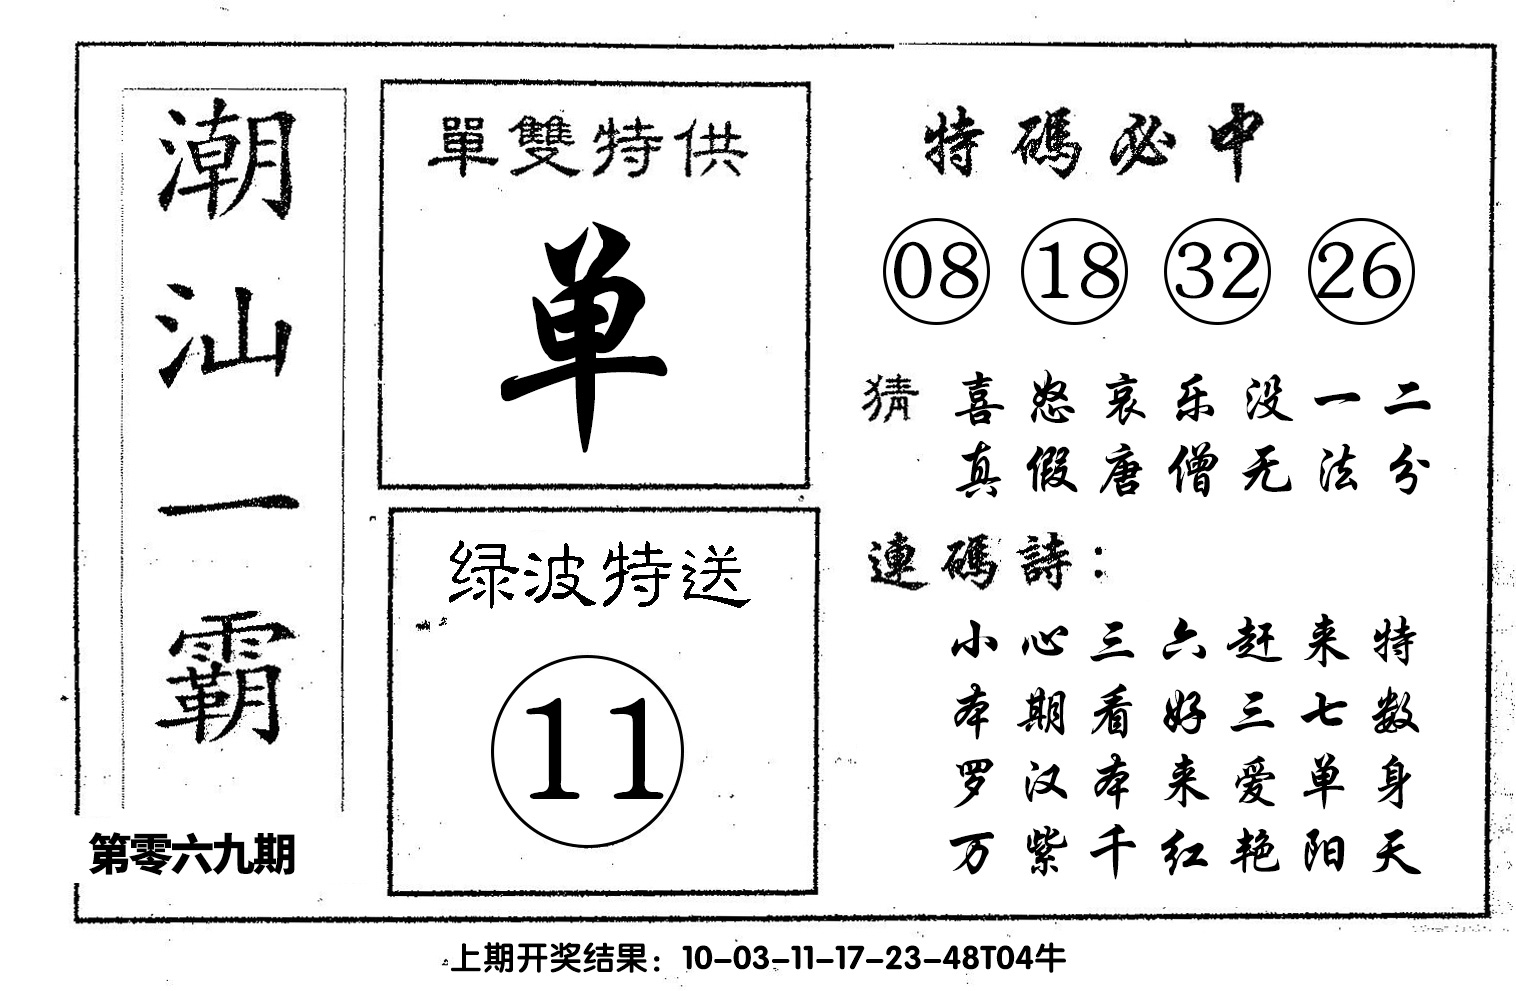 潮汕一霸
第零六九期
單雙特供
单
绿波特送
11
特碼必中
08 18 32 26
猜 喜怒哀乐没一二
真假唐僧无法分
連碼詩：
小心三六赶来特
本期看好三七数
罗汉本来爱单身
万紫千红艳阳天
上期开奖结果：10-03-11-17-23-48T04牛